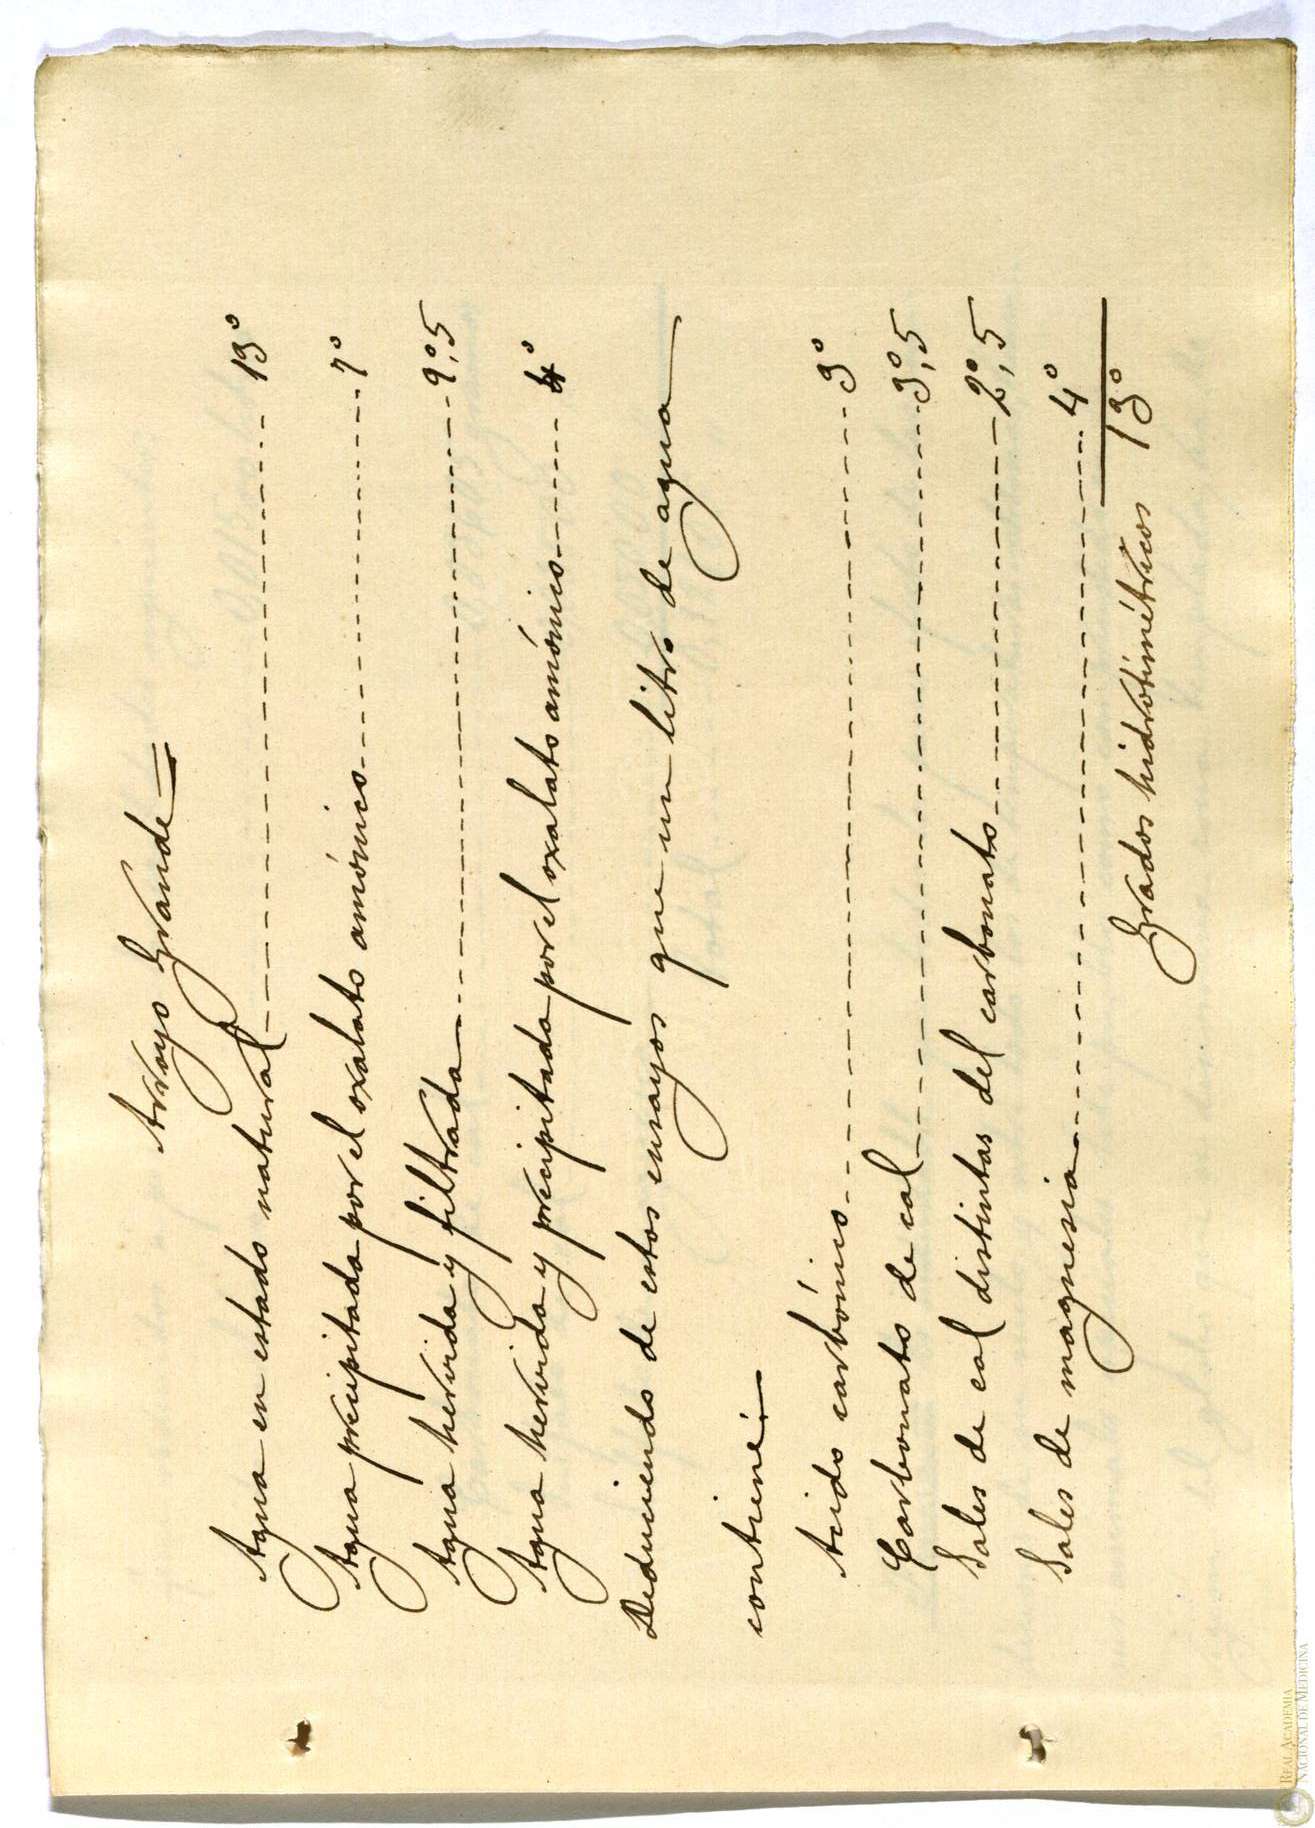 Arroyo Grande=
Agua en estado natural 13°
Agua precipitada por el oxalato amónico 7°
Agua hervida y filtrada 9°,5
Agua hervida y precipitada por el oxalato amónico 4°
Deduciendo de estos ensayos que un litro de agua
contiene.
Acido carbónico 3°
Carbonato de cal 3°,5
Sales de cal distintas del carbonato 2°,5
Sales de magnesia 4°
Grados hidrotimétricos 13°
REAL ACADEMIA
NACIONAL DE MEDICINA